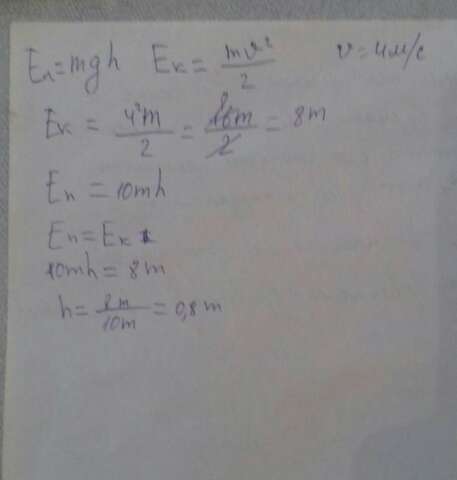 Eп=mgh Eк= mv²/2 v=4м/с
Eк = 4²m/2 = 16m/2 = 8m
Eп = 10mh
Eп=Eк
10mh = 8m
h= 8m/10m = 0,8 m